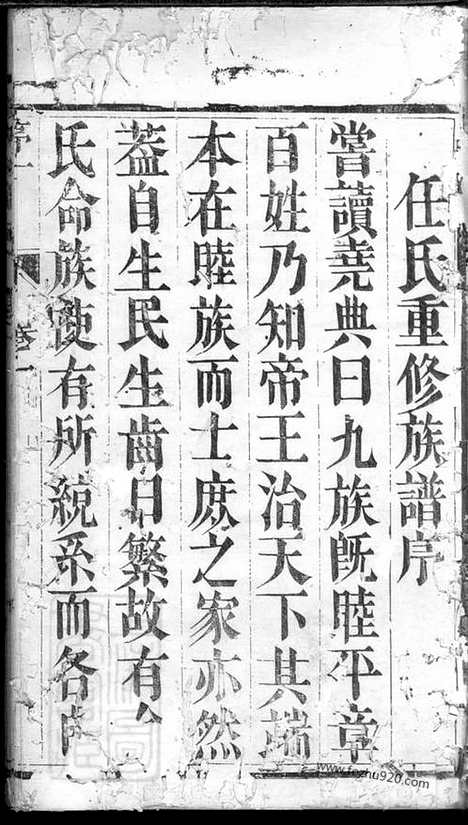 任氏重修族譜序
嘗讀堯典曰九族既睦平章
百姓乃知帝王治天下其端
本在睦族而士庶之家亦然
蓋自生民生齒日繁故有
氏命族使有所統系而各
序一
卷一
www.fozhu920.com